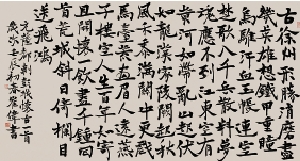 古徐州形勝消磨盡
幾英雄想鐵甲重瞳
烏騅汗血玉帳連空
楚歌八千兵散料夢
魂應不到江東空有
黃河如帶亂山起伏
如龍漢家陵闕起秋
風禾黍滿關中更戲
馬臺荒畫眉人遠燕
子樓空人生百年如寄
且開懷一飲盡千鍾回
首荒城斜日倚欄目
送飛鴻
元薩都剌懷古一首